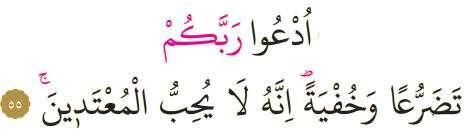 اُدْعُوا رَبَّكُمْ
تَضَرُّعًا وَخُفْيَةًۜ اِنَّهُ لَا يُحِبُّ الْمُعْتَدٖينَۚ ٥٥